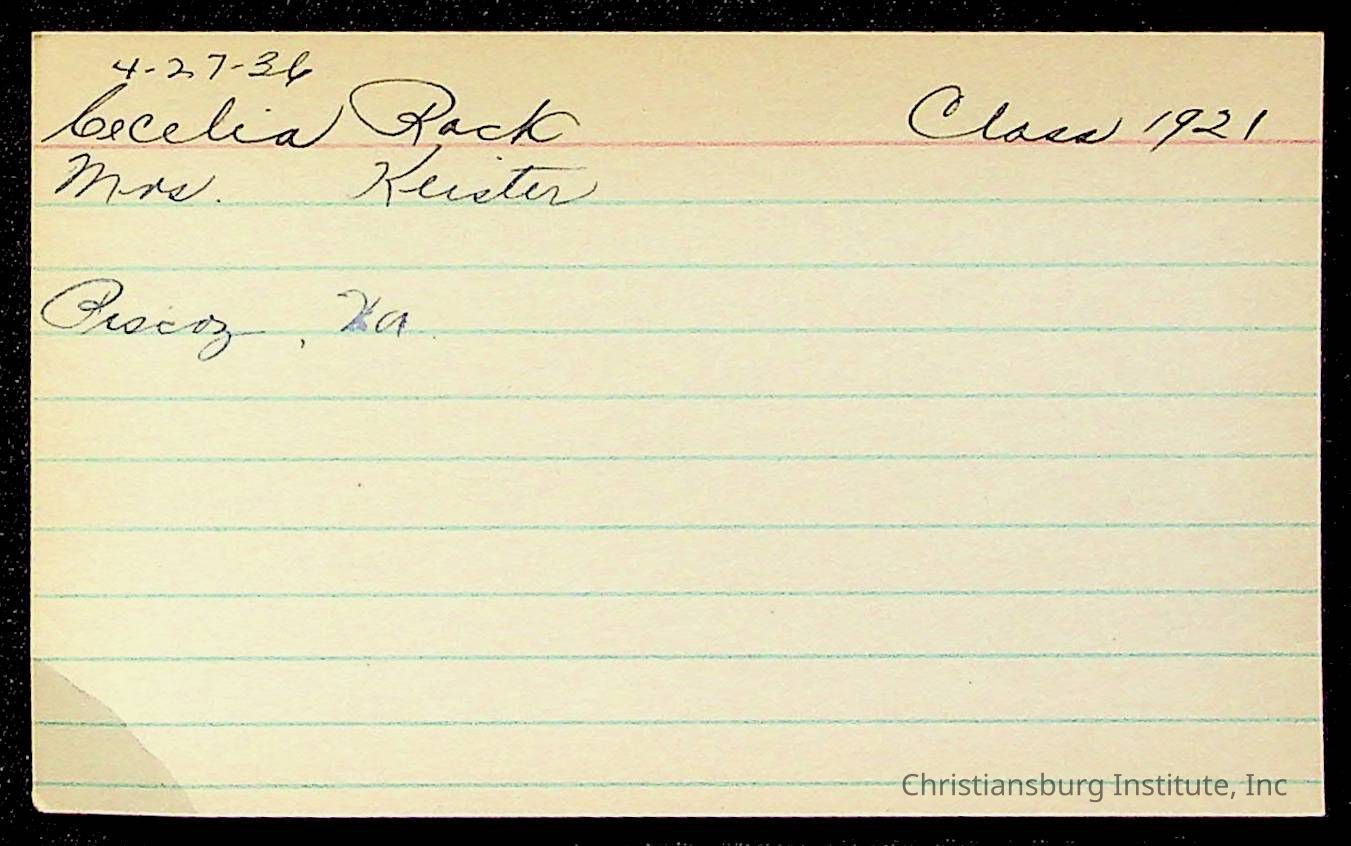 4-27-36
Cecelia Rock Class 1921
Mrs. Keister
, Va.
Christiansburg Institute, Inc